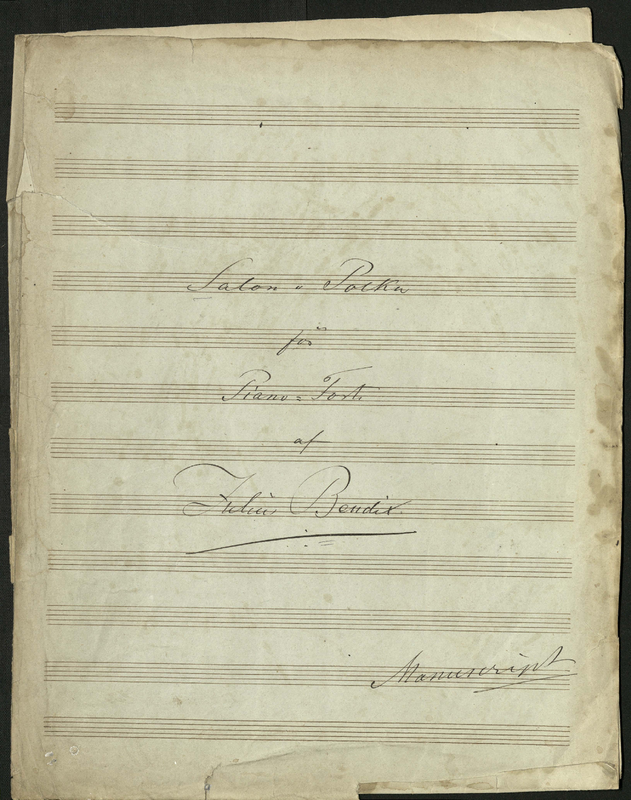 Salon = Polka
för
Piano = Forte
af
Julius Bendix.
Manuscript